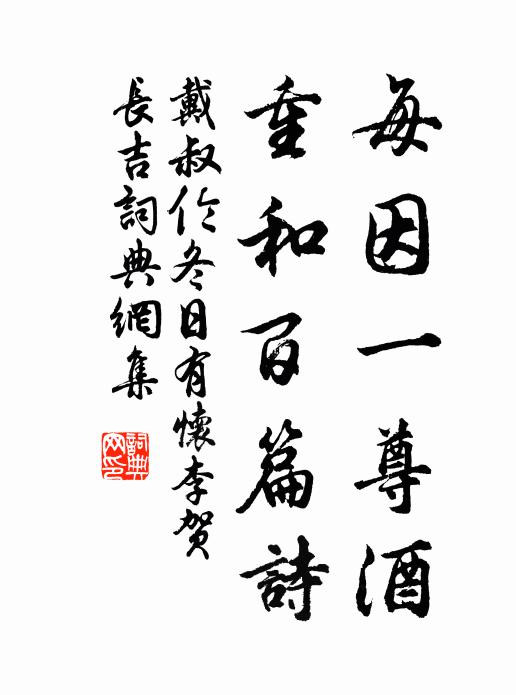 每因一尊酒
重和百篇詩
戴叔伦冬日有懷李贺
長吉詞典網集
詞典网印